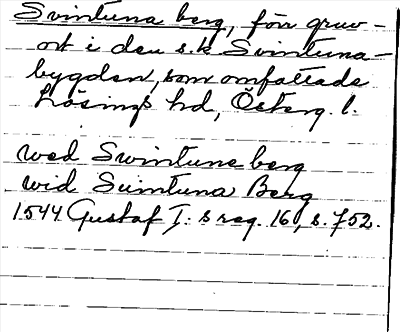 Svintuna berg, förr gruv-
ort i den s.k Svintuna-
bygden, som omfattade
Lösings hd, Österg. l.
wed Swintune berg
wid Suintuna Berg
1544 Gustaf I:s reg. 16, s. 752.